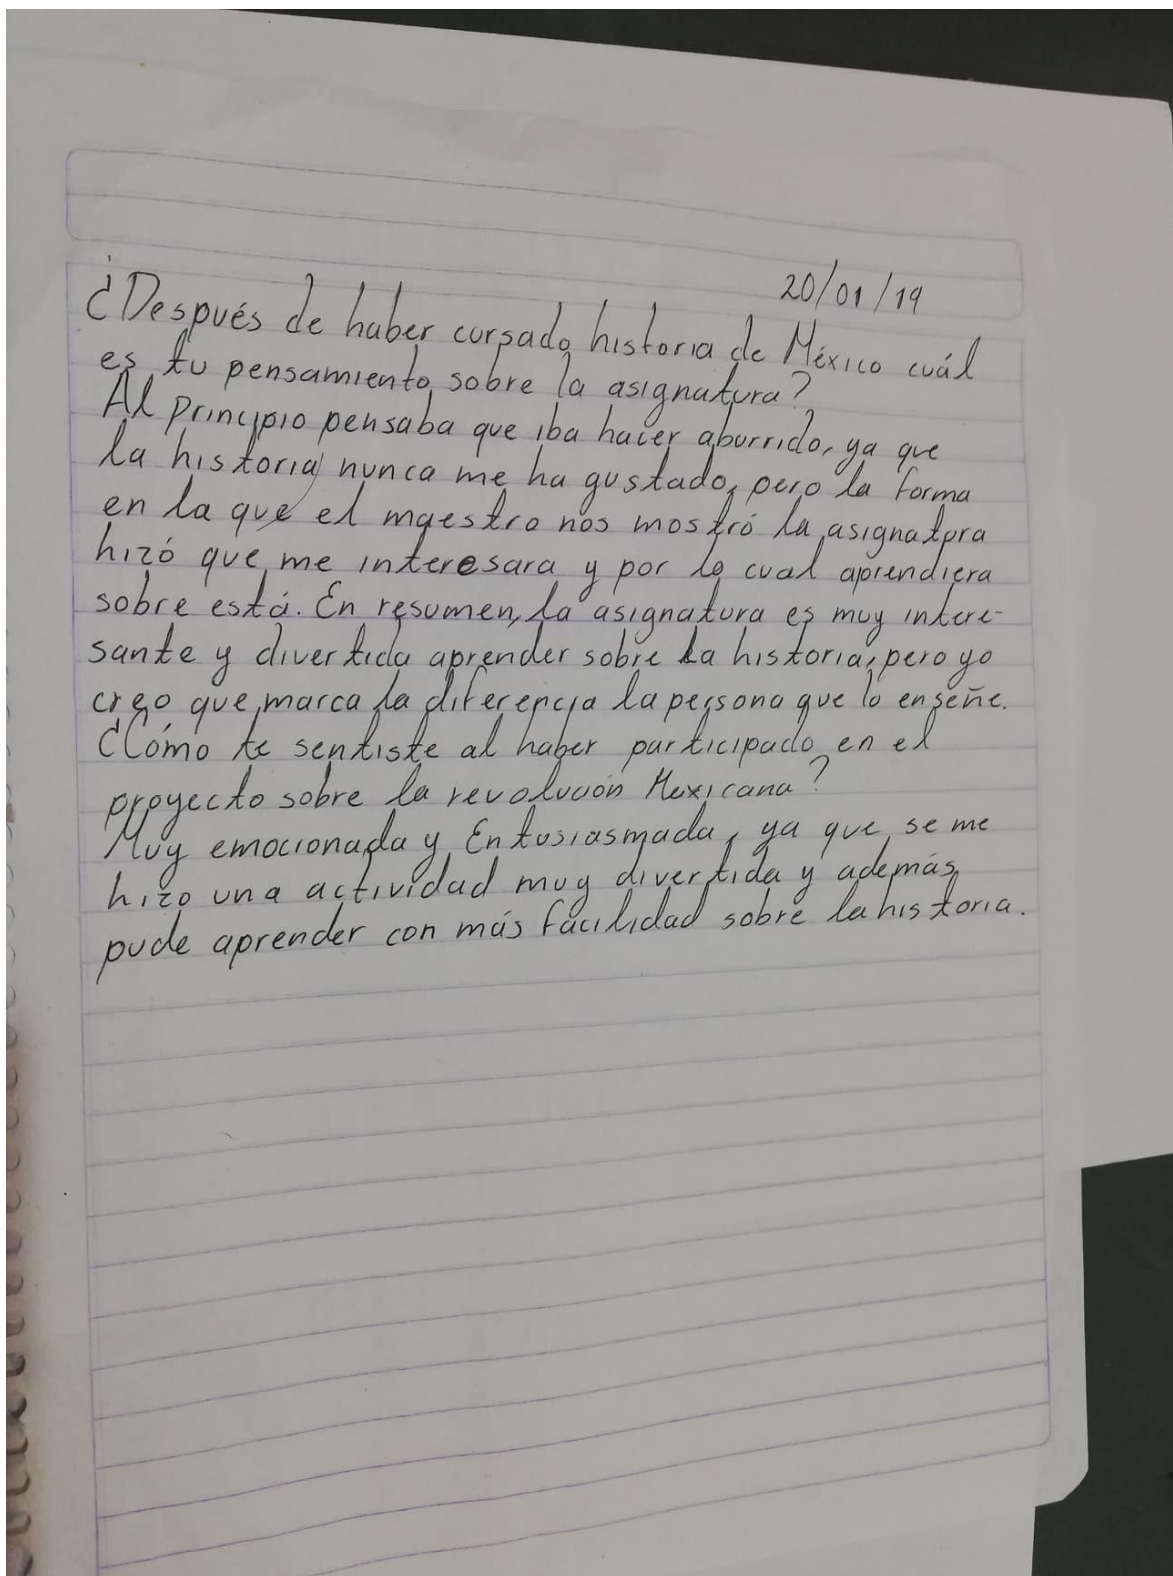 20/01/19
¿Después de haber cursado historia de México cuál
es tu pensamiento sobre la asignatura?
Al principio pensaba que iba hacer aburrido, ya que
la historia nunca me ha gustado, pero la forma
en la que el maestro nos mostró la asignatura
hizó que me interesara y por lo cual aprendiera
sobre está. En resumen, la asignatura es muy intere-
sante y divertida aprender sobre la historia, pero yo
creo que marca la diferencia la persona que lo enseñe.
¿Cómo te sentiste al haber participado en el
proyecto sobre la revolución Mexicana?
Muy emocionada y Entusiasmada, ya que se me
hizo una actividad muy divertida y además
pude aprender con más facilidad sobre la historia.